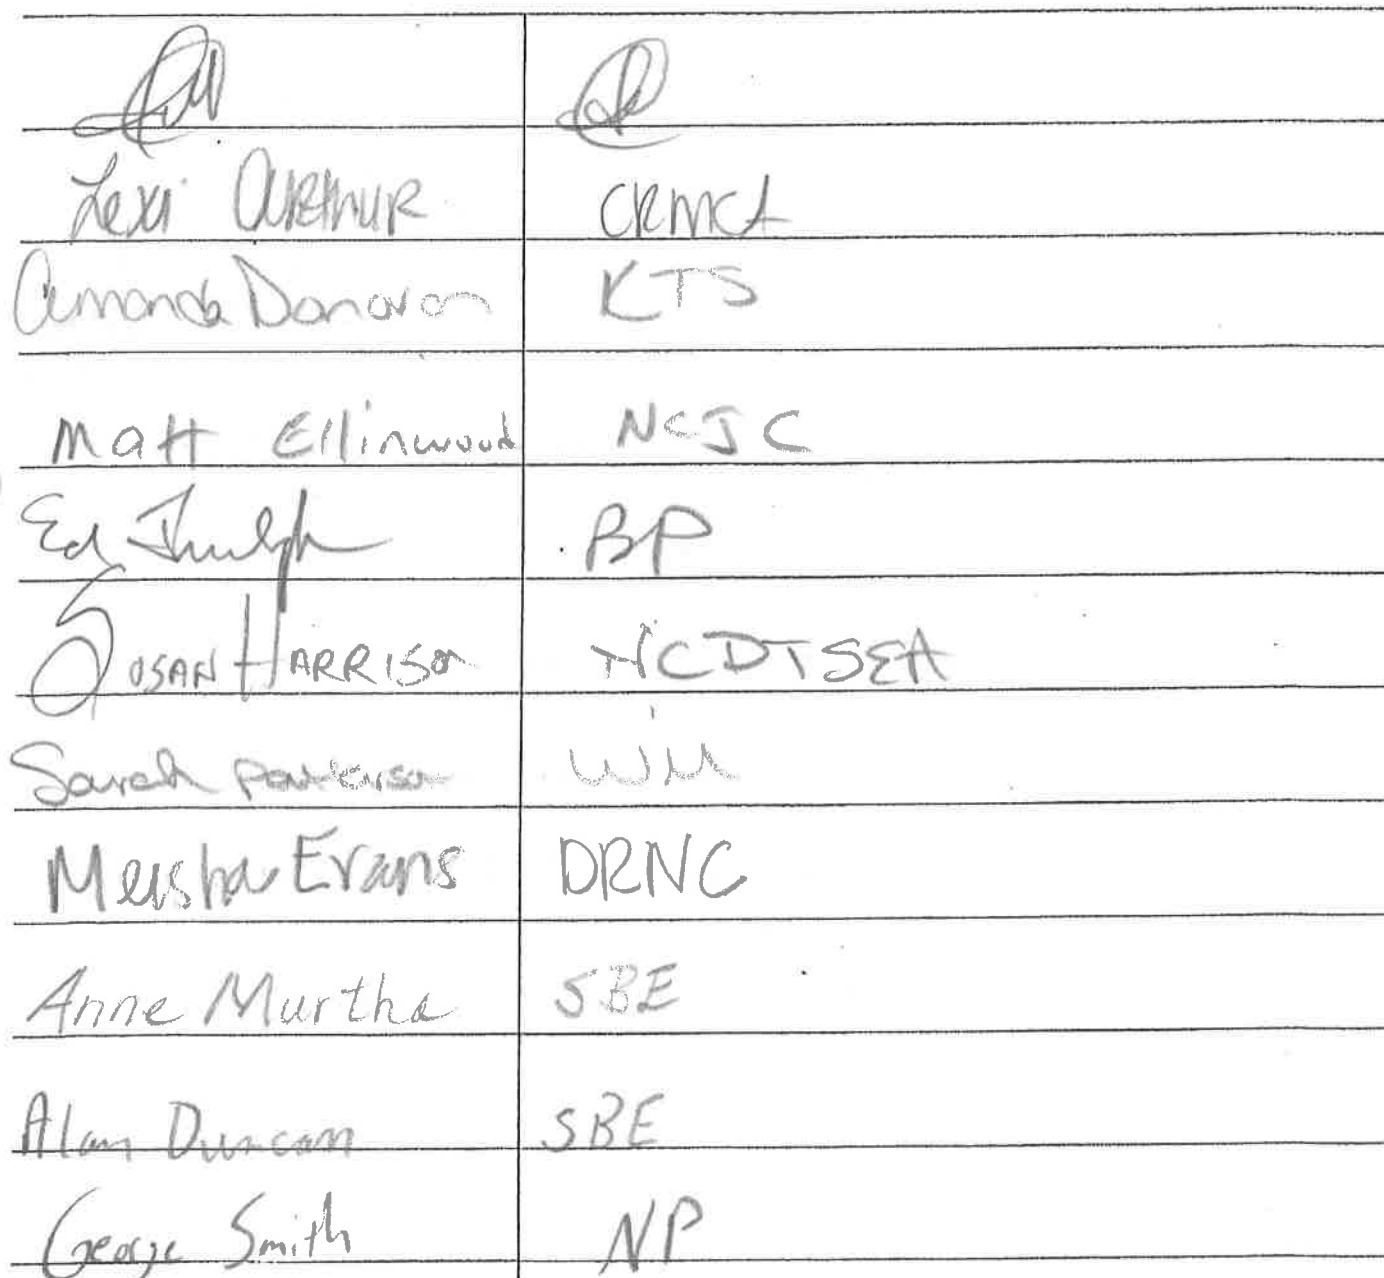 Lexi Arthur CRMCA
Amanda Donovan KTS
Matt Ellinwood NCJC
Ed BP
Susan Harrison NCDTSEA
Sarah Patterson WM
Meisha Evans DRNC
Anne Murtha SBE
Alan Duncan SBE
George Smith NP